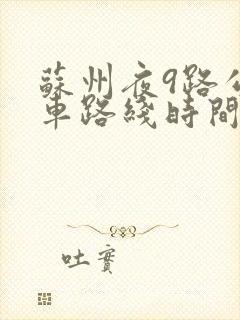 蘇州夜9路公
車路綫時間
吐實